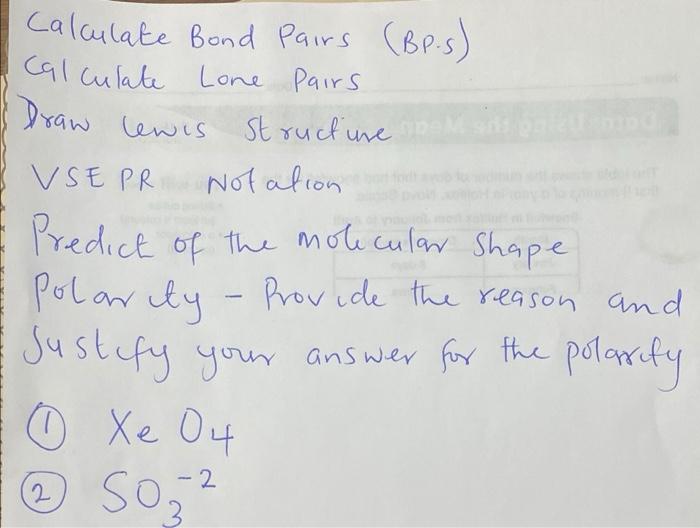 Calculate Bond Pairs (BP.s)
Calculate Lone Pairs
Draw Lewis Structure
VSE PR Notation
Predict of the molecular shape
Polarity - Provide the reason and
Justify your answer for the polarity
① XeO4
② SO3-2